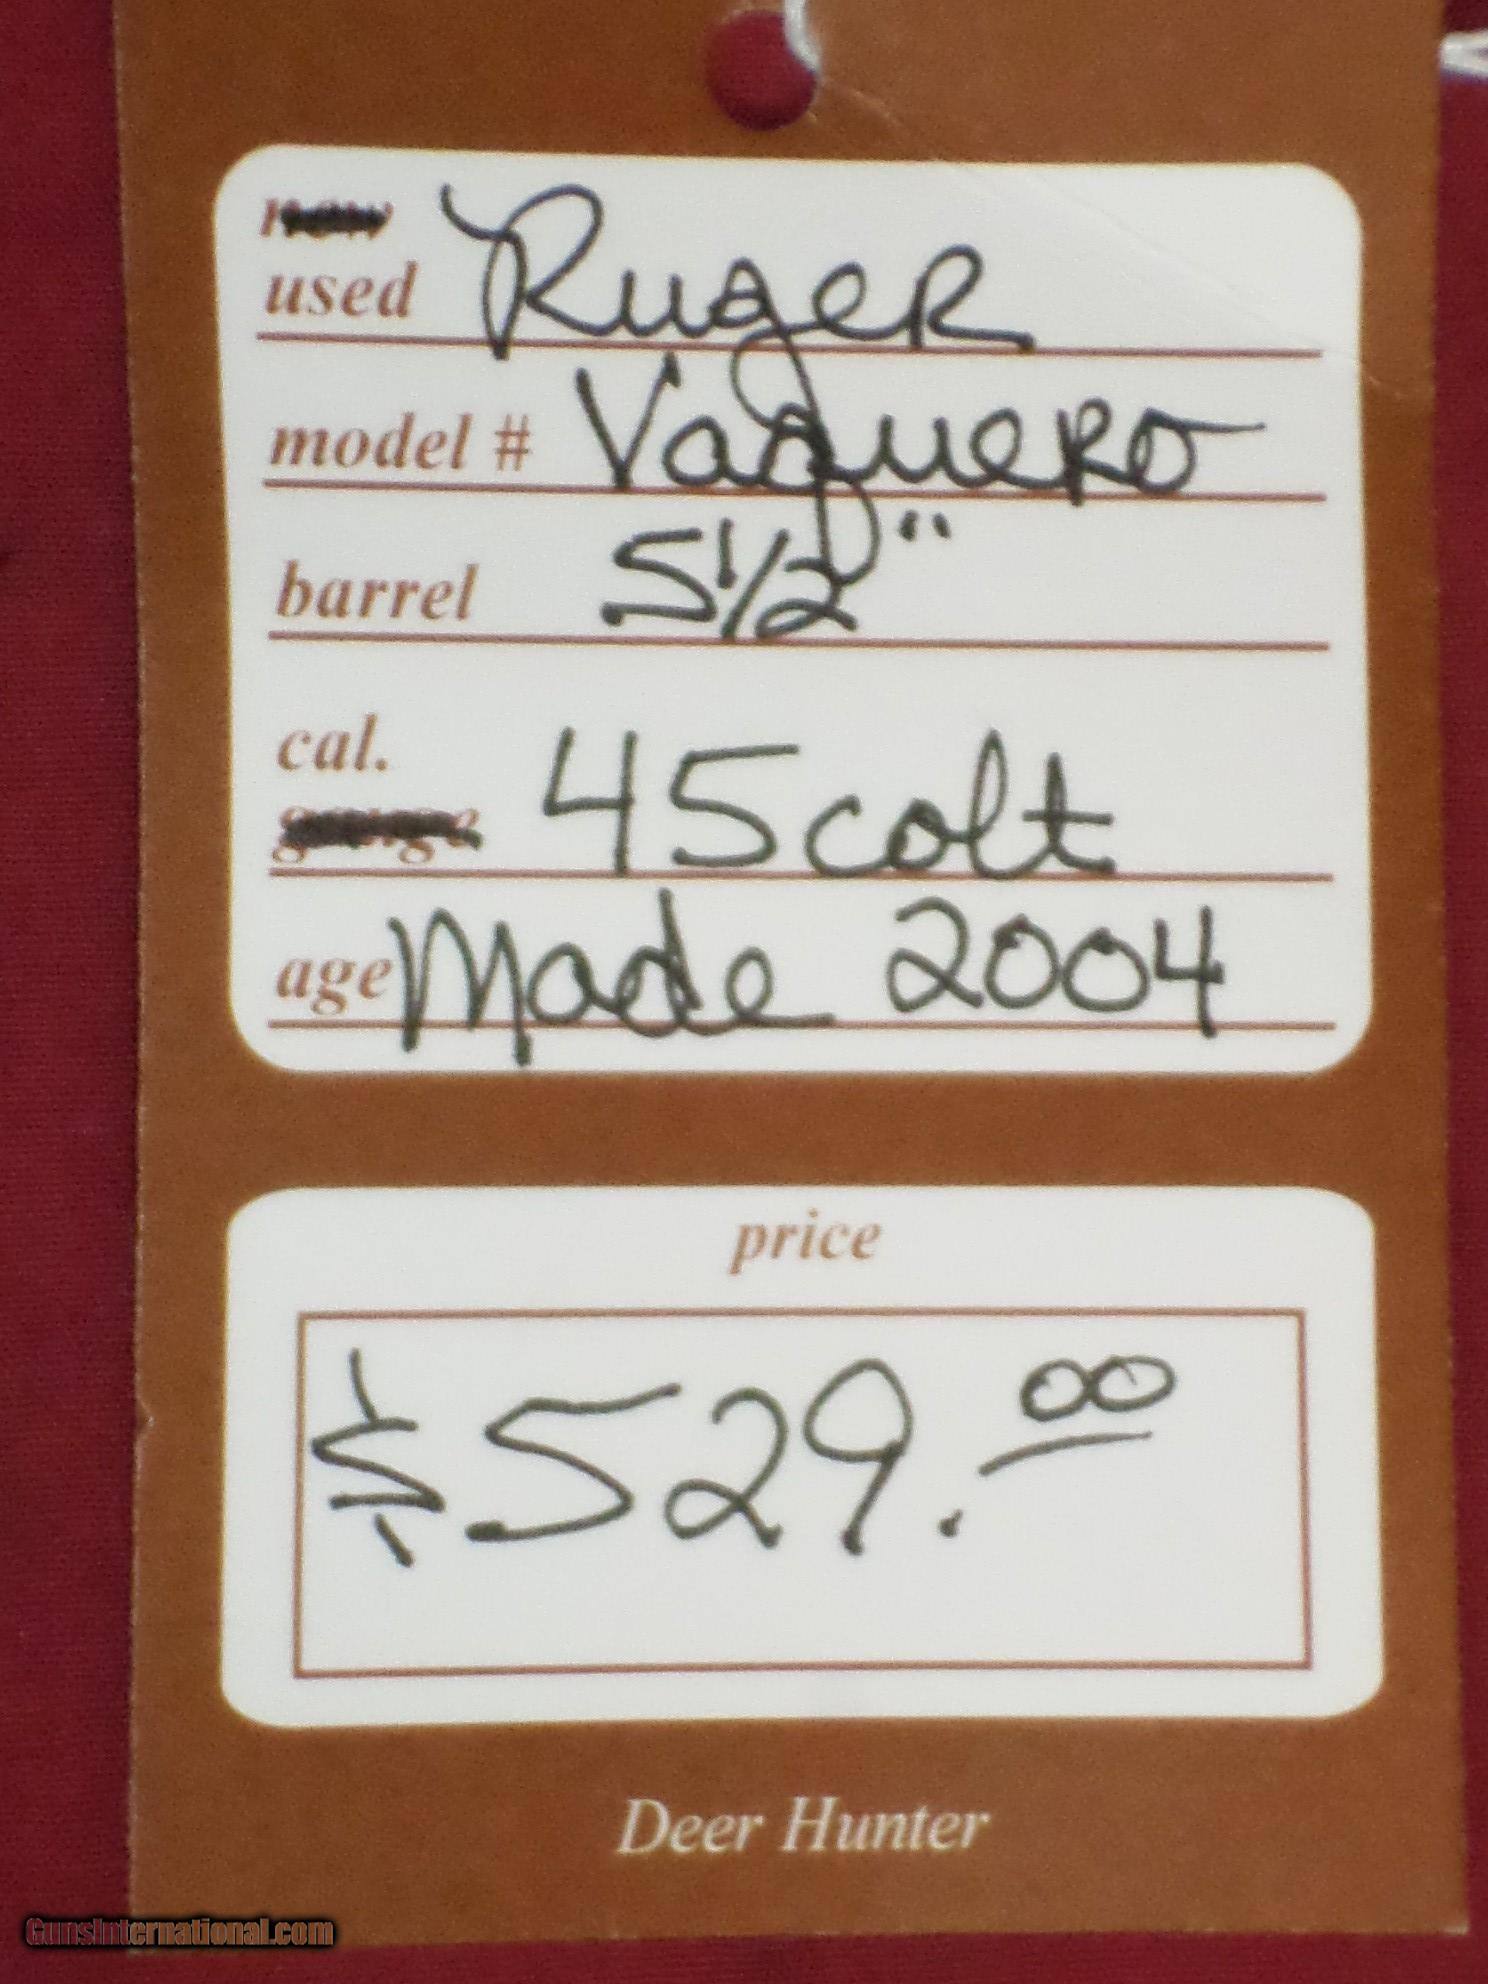 new
used Ruger
model # Vaquero
barrel 5 1/2"
cal.
gauge 45 colt
age Made 2004
price
$529.00
Deer Hunter
GunsInternational.com